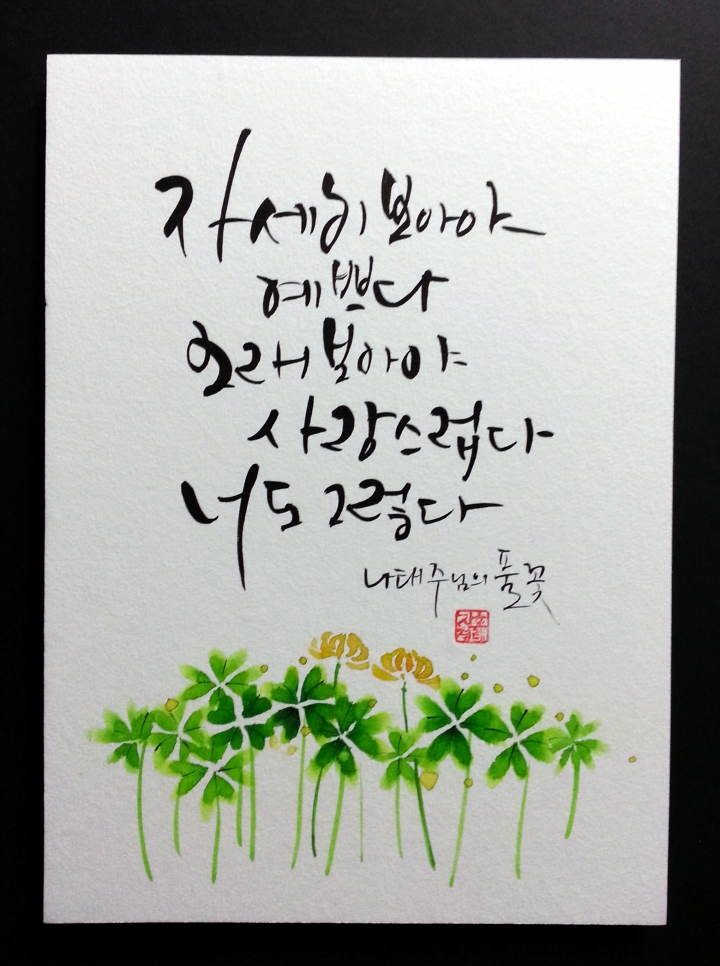 자세히 보아야
예쁘다
오래 보아야
사랑스럽다
너도 그렇다
나태주님의 풀꽃